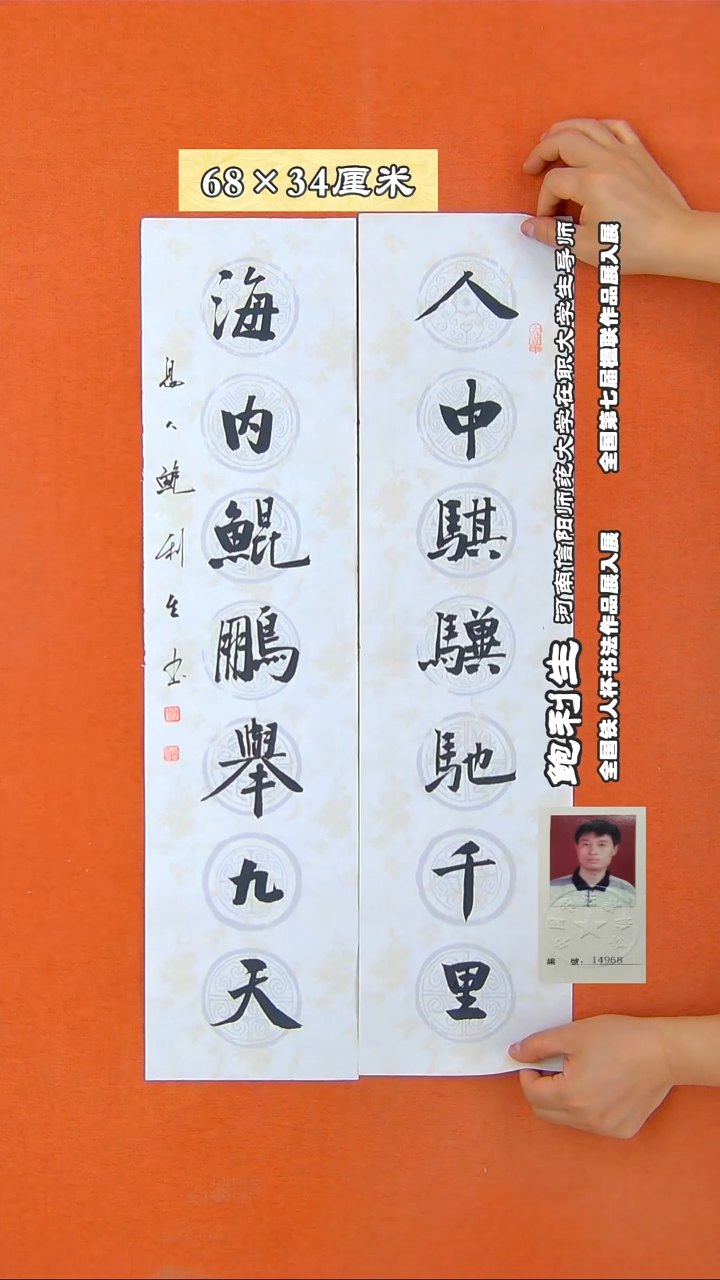 68×34厘米
人中騏驥馳千里
海内鯤鵬舉九天
息人鮑利生书
鲍利生
河南信阳师范大学在职大学生导师
全国第七届楹联作品展入展
全国铁人杯书法作品展入展
編號：14968